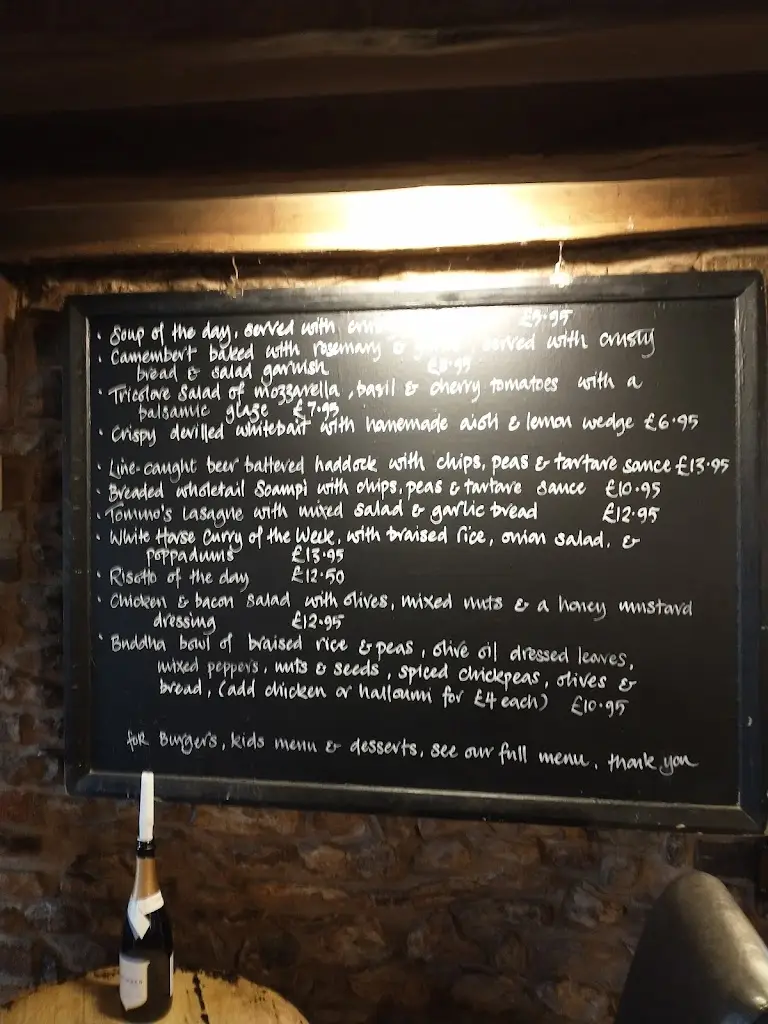 · Soup of the day, served with £5.95
· Camembert baked with rosemary & served with crusty
bread & salad garnish £8.95
· Tricolore Salad of mozzarella, basil & cherry tomatoes with a
balsamic glaze £7.95
· Crispy devilled whitebait with homemade aioli & lemon wedge £6.95
· Line-caught beer battered haddock with chips, peas & tartare sauce £13.95
· Breaded wholetail Scampi with chips, peas & tartare sauce £10.95
· Tommo's Lasagne with mixed salad & garlic bread £12.95
· White Horse Curry of the Week, with braised rice, onion salad, &
poppadums £13.95
· Risotto of the day £12.50
· Chicken & bacon salad with olives, mixed nuts & a honey mustard
dressing £12.95
· Buddha bowl of braised rice & peas, olive oil dressed leaves,
mixed peppers, nuts & seeds, spiced chickpeas, olives &
bread, (add chicken or halloumi for £4 each) £10.95
for Burgers, kids menu & desserts, see our full menu, thank you